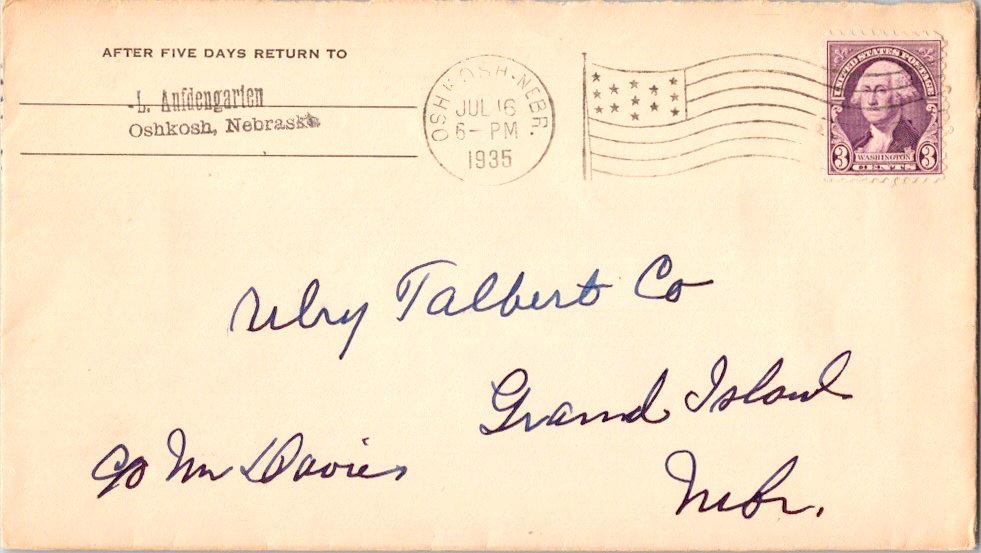 AFTER FIVE DAYS RETURN TO
L. Aufdengarten
Oshkosh, Nebraska
OSHKOSH-NEBR.
JUL 16
6 - PM
1935
UNITED STATES POSTAGE
WASHINGTON
3 3
CENTS
Talbert Co
Grand Island
Nebr.
c/o Mr Davies